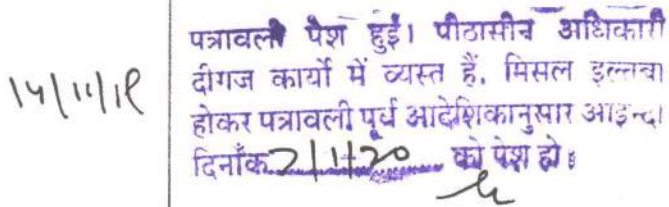 पत्रावली पेश हुई। पीठासीन अधिकारी
14/11/19
दीगज कार्यो में व्यस्त हैं, मिसल इल्तवा
होकर पत्रावली पूर्व आदेशिकानुसार आइन्दा
दिनाँक 2/1/20 को पेश हो।